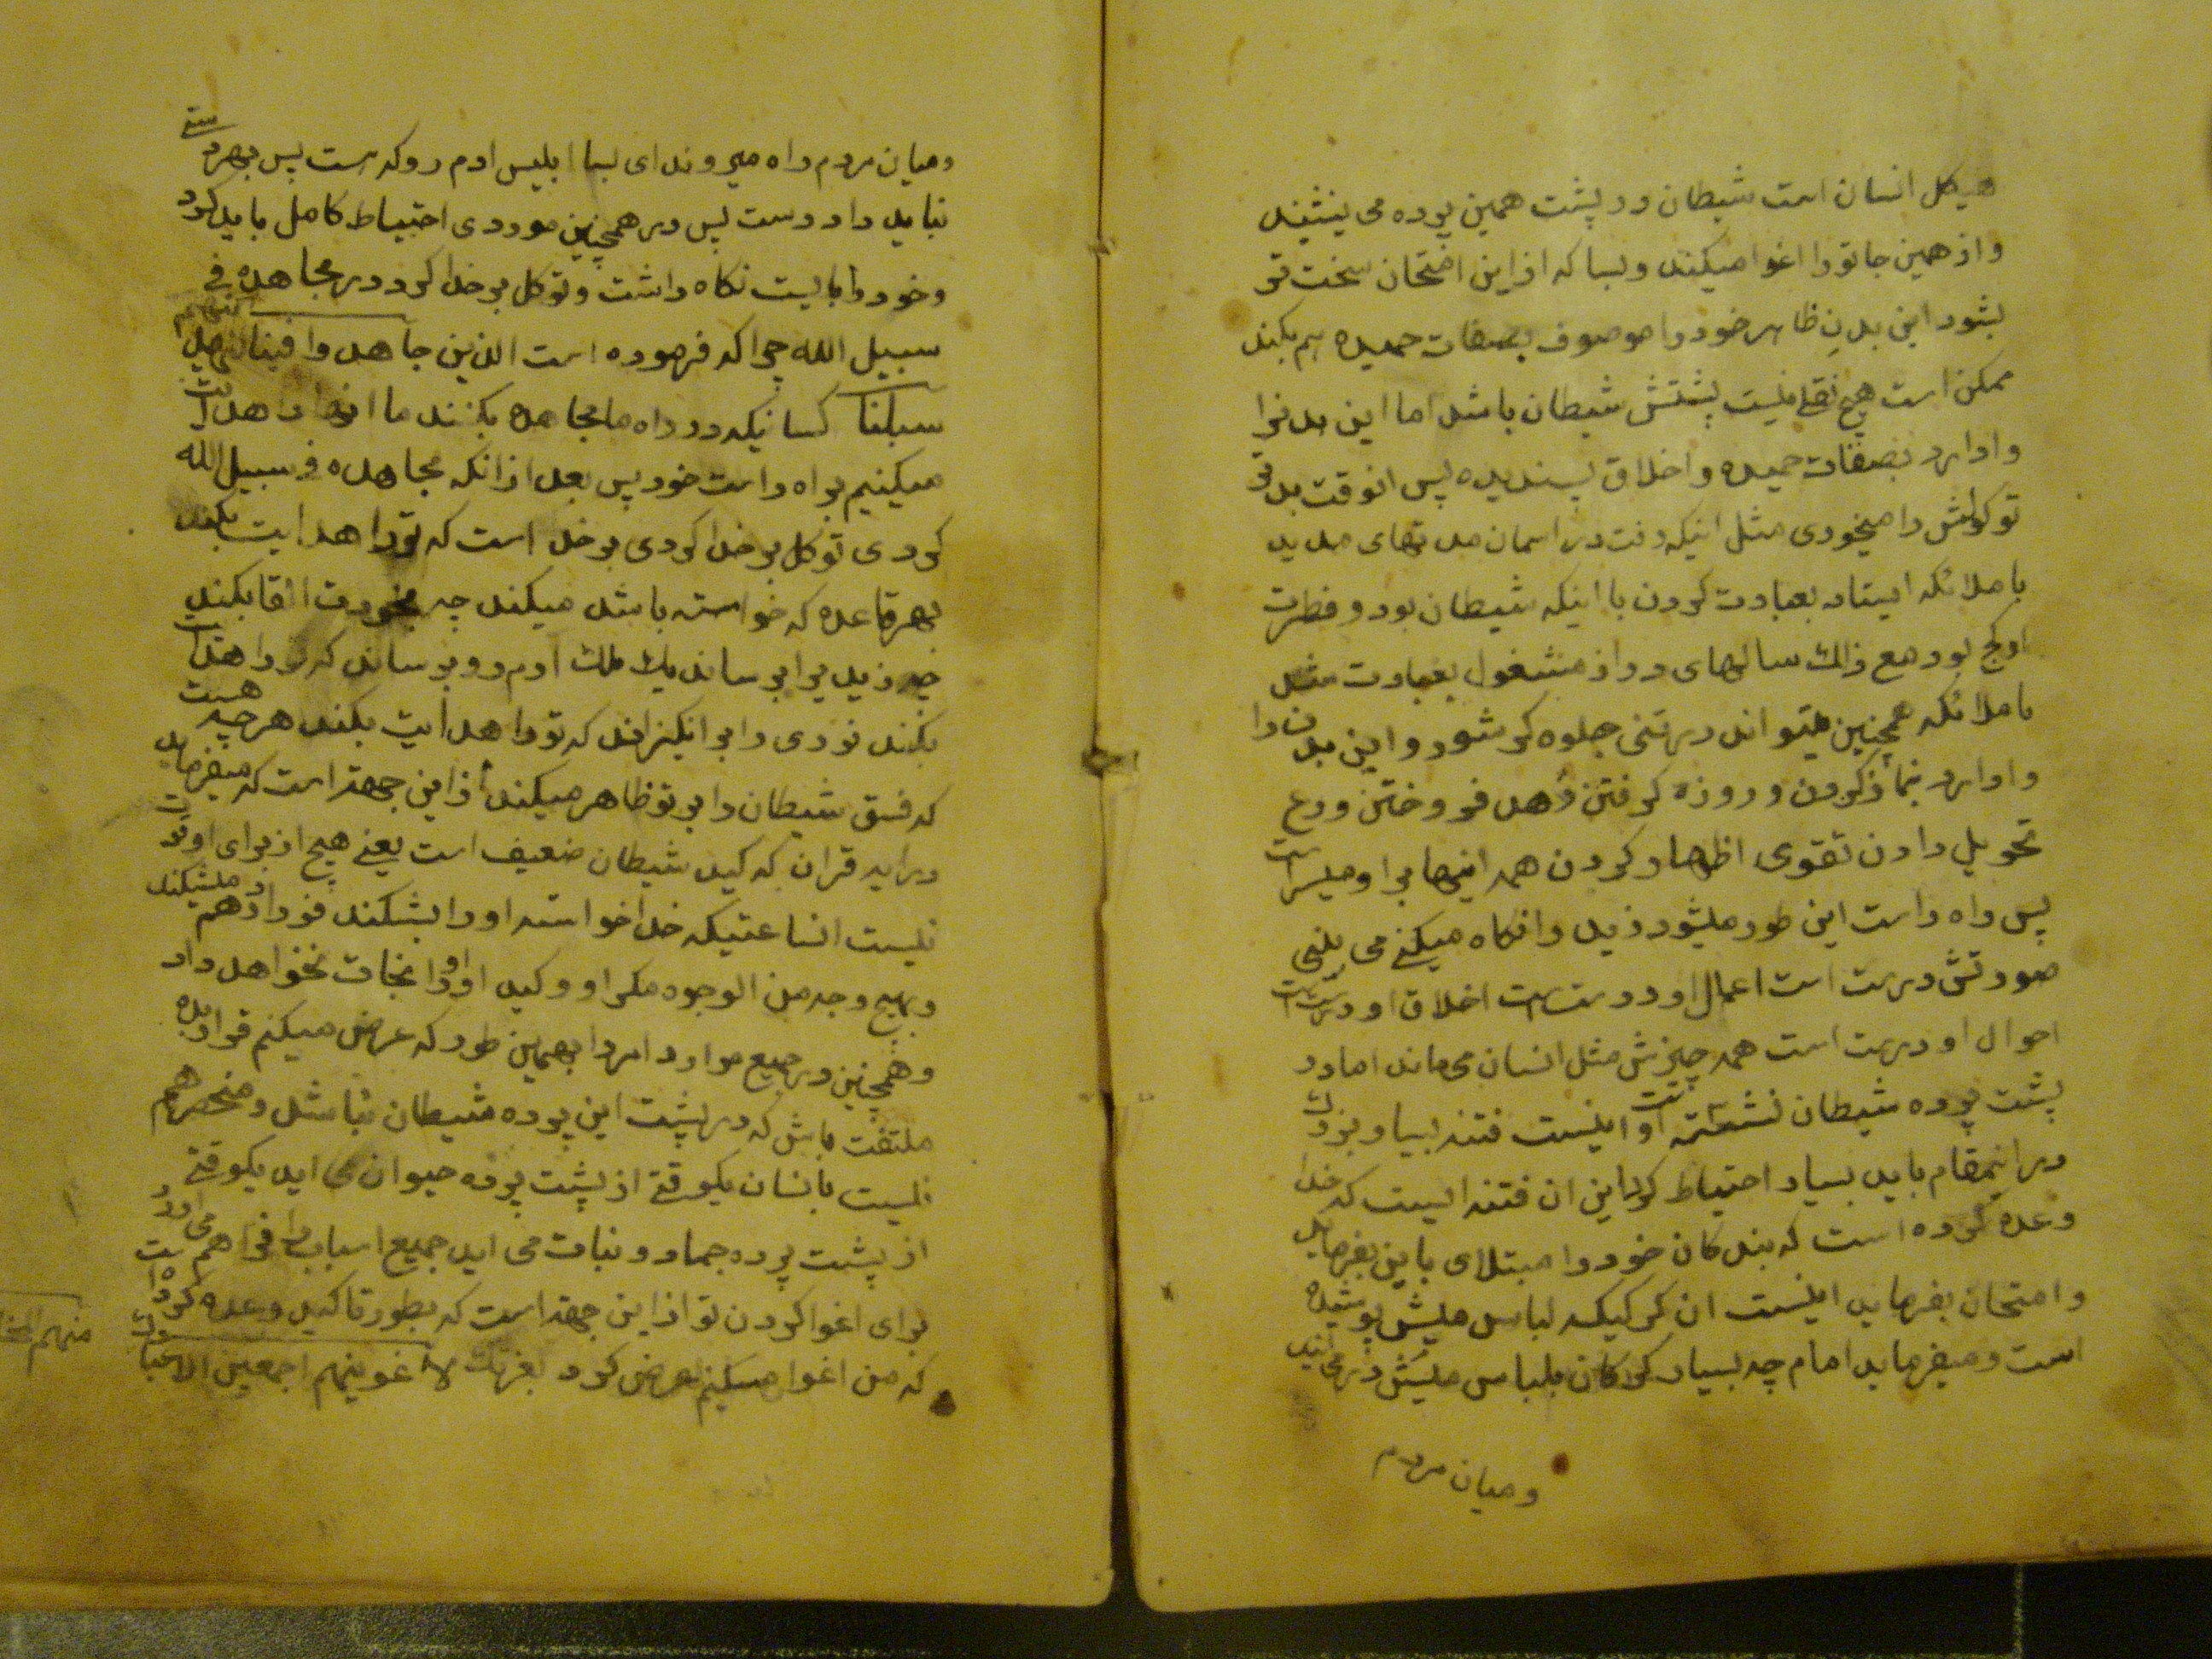 هیکل انسان است شیطان در پشت همین پرده می نشیند
و از همین جا تو را اغوا میکند و بسا که از این امتحان سخت تر
بشود این بدن ظاهر خود را موصوف بصفات حمیده هم بکند
ممکن است هیچ نقلی نیست پشتش شیطان باشد اما این بدنرا
وادارد بصفات حمیده و اخلاق پسندیده پس انوقت بدتر
تو گولش را میخوری مثل اینکه رفت در اسمان مدتهای مدید
با ملائکه ایستاد بعبادت کردن با اینکه شیطان بود و فطرت
او کج بود مع ذالک سالهای دراز مشغول بعبادت مثل
ملائکه همچنین میتواند در تنی جلوه گر شود و این بدن را
وادارد بنماز کردن و روزه گرفتن زهد فروختن ورع
تحویل دادن تقوی اظهار کردن همه اینها برا و میسر است
پس راه راست این طور میشود زید را نکاه میکنی می بینی
صورتش درست است اعمال او درست است اخلاق او درست است
احوال او درست است همه چیزش مثل انسان می ماند اما در
پشت پرده شیطان نشسته است و اینست فتنه بسیار بزرک
در اینمقام باید بسیار احتیاط کرد این ان فتنه ایست که خدا
وعده کرده است که بندکان خود را مبتلای باین بفرماید
و امتحان بفرماید اینست ان کرکیکه لباس میش پوشیده
است و میفرماید امام چه بسیار کرکان بلباس میش در می ایند
و میان مردم
و میان مردم راه میروند ای بسا ابلیس ادم رو که هست پس بهر دستی
نباید داد دست پس در همچنین موردی احتیاط کامل باید کرد
و خود را بایست نکاه داشت و توکل بر خدا کرد در مجاهده فی
سبیل الله چرا که فرموده است الذین جاهدوا فینا لنهدینهم
سبلنا کسانیکه در راه ما مجاهده بکنند ما انها را هدایت
میکنیم براه راست خود پس بعد از انکه مجاهده فی سبیل الله
کردی توکل بر خدا کردی بر خدا است که تو را هدایت بکند
بهر قاعده که خواسته باشد میکند چه بخودت القا بکند
چه زید برا برساند یک ملک ادم رو برساند که تو را هدایت
بکند نوری را برانکیزاند که تو را هدایت بکند هر چه هست
که فسق شیطان را بر تو ظاهر میکند از این جهة است که میفرماید
در ایه قران که کید شیطان ضعیف است یعنی هیچ از برای او قوت
نیست انساعتیکه خدا خواسته او را بشکند فورا در هم میشکند
و بهیچ وجه من الوجوه مکر او و کید او او را نجات نخواهد داد
و همچنین در جمیع موارد امر را بهمین طور که عرض میکنم قرار بده
ملتفت باش که در پشت این پرده شیطان نباشد و منحصر هم
نیست بانسان یکوقتی از پشت پرده حیوان می اید یکوقتی
از پشت پرده جماد و نبات می اید جمیع اسباب را فراهم می اورد
برای اغوا کردن تو از این جهة است که بطور تاکید وعده کرده است
که من اغوا میکنم عرض کرد بعزتک لاغوینهم اجمعین الا عبادک
منهم المخ